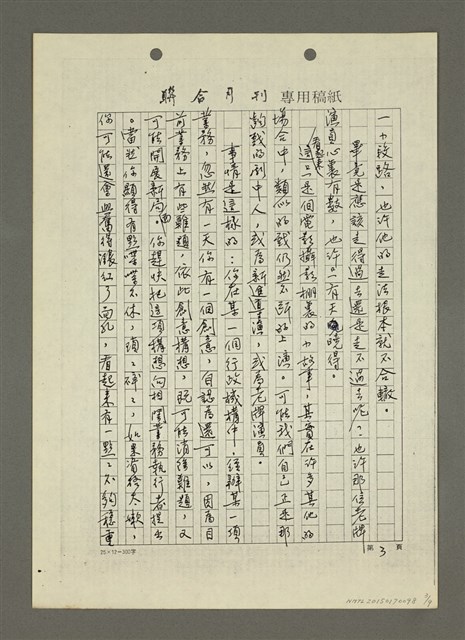 聯合月刊 專用稿紙
一小段路，也許他的走法根本就不合轍。
畢竟是應該走得過去還是走不過去呢？也許那位老牌
演員心裏有數，也許只有天曉得。
看起來這只是個電影攝影棚裏的小故事，其實在許多其他的
場合中，類似的戲仍然不斷的上演。可能我們自己正是那
齣戲的劇中人，或為新進導演，或為老牌演員。
事情是這樣的：你在某一個行政機構中，經辦某一項
業務，忽然有一天你有一個創意，自認為還可以，因為目
前業務上有些難題，依此創意構想，既可能消弭難題，又
可能開展新局面。你趕快把這項構想向相關業務執行者提出
。當然你顯得有點喋喋不休，瑣瑣碎碎，如果資格太嫩，
你可能還會興奮得漲紅了面孔，看起來有一點點不夠穩重
25×12=300字
第 3 頁
NMTL20150170098 3/9